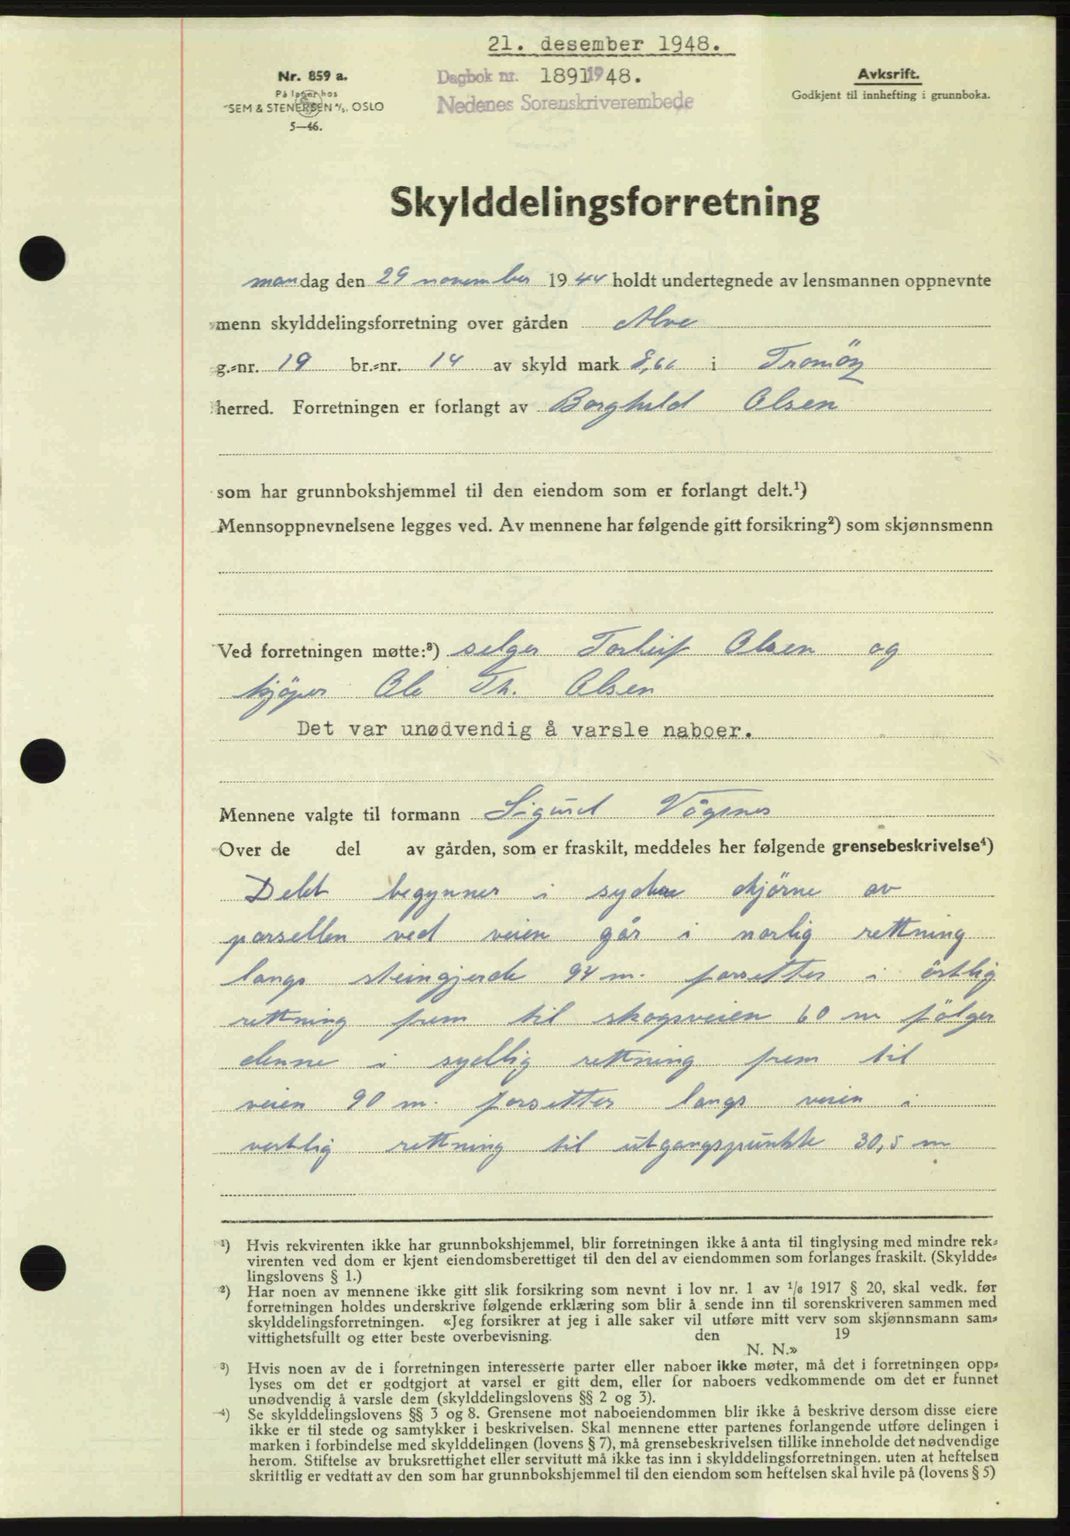 21. desember 1948.
Nr. 859 a.
På lager hos
SEM & STENERSEN A/S, OSLO
5—46.
Dagbok nr. 1891 1948.
Nedenes Sorenskriverembede
Avskrift.
Godkjent til innhefting i grunnboka.
Skylddelingsforretning
mandag den 29 november 1944 holdt undertegnede av lensmannen oppnevnte
menn skylddelingsforretning over gården Alve
g.-nr. 19 br.-nr. 14 av skyld mark 8,60 i Tromöy
herred. Forretningen er forlangt av Borghild Olsen
som har grunnbokshjemmel til den eiendom som er forlangt delt.¹)
Mennsoppnevnelsene legges ved. Av mennene har følgende gitt forsikring²) som skjønnsmenn
Ved forretningen møtte:³) selger Torleif Olsen og
kjöper Ole Th. Olsen
Det var unødvendig å varsle naboer.
Mennene valgte til formann Sigurd Vågsnes
Over de del av gården, som er fraskilt, meddeles her følgende grensebeskrivelse⁴)
Delet begynner i sydere hjörne av
parsellen ved veien går i norlig rettning
langs steingjerde 94 m. forsetter i östlig
rettning frem til skogsveien 60 m fölger
denne i sydlig rettning frem til
veien 90 m. forsetter langs veien i
vestlig rettning til utgangspunkte 30,5 m
¹) Hvis rekvirenten ikke har grunnbokshjemmel, blir forretningen ikke å anta til tinglysing med mindre rek-
virenten ved dom er kjent eiendomsberettiget til den del av eiendommen som forlanges fraskilt. (Skyldde-
lingslovens § 1.)
²) Har noen av mennene ikke gitt slik forsikring som nevnt i lov nr. 1 av 1/6 1917 § 20, skal vedk. før
forretningen holdes underskrive følgende erklæring som blir å sende inn til sorenskriveren sammen med
skylddelingsforretningen. «Jeg forsikrer at jeg i alle saker vil utføre mitt verv som skjønnsmann sam-
vittighetsfullt og etter beste overbevisning. den 19
N. N.»
³) Hvis noen av de i forretningen interesserte parter eller naboer ikke møter, må det i forretningen opp-
lyses om det er godtgjort at varsel er gitt dem, eller for naboers vedkommende om det er funnet
unødvendig å varsle dem (skylddelingslovens §§ 2 og 3).
⁴) Se skylddelingslovens §§ 3 og 8. Grensene mot naboeiendommen blir ikke å beskrive dersom disse eiere
ikke er til stede og samtykker i beskrivelsen. Skal mennene etter partenes forlangende utføre delingen i
marken i forbindelse med skylddelingen (lovens § 7), må grensebeskrivelsen tillike inneholde det nødvendige
herom. Stiftelse av bruksrettighet eller servitutt må ikke tas inn i skylddelingsforretningen, uten at heftelsen
skriftlig er vedtatt av den som har grunnbokshjemmel til den eiendom som heftelsen skal hvile på (lovens § 5)